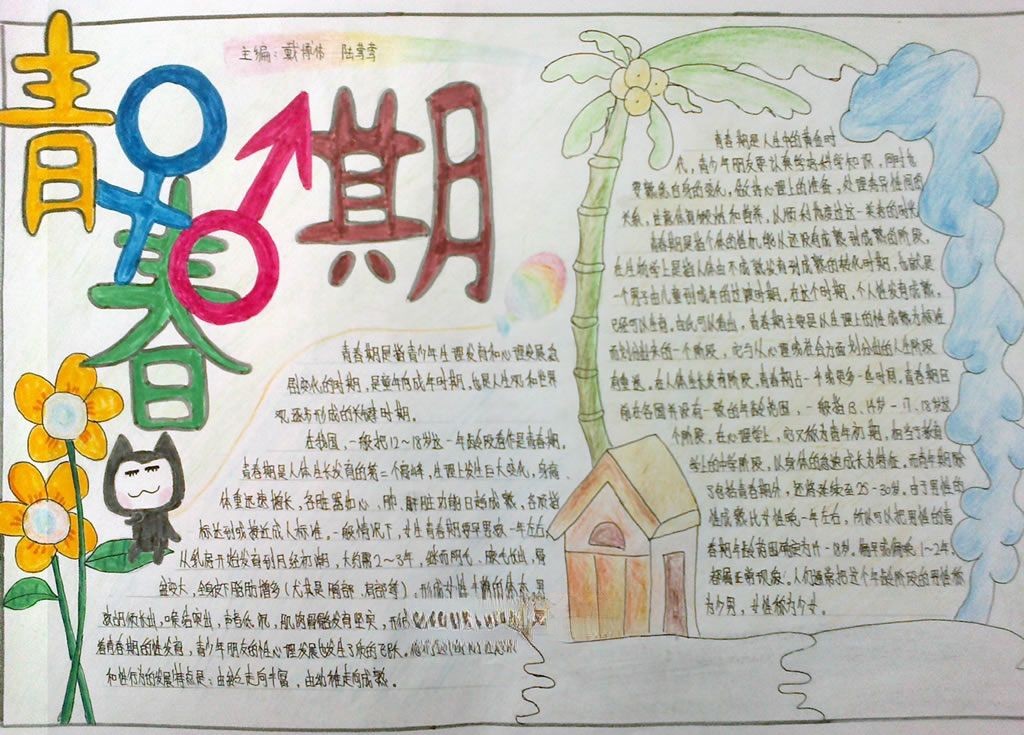 青春期
主编：戴博伟 陆莺莺
青春期是指青少年生理发育和心理发展急
剧变化的时期，是童年向成年时期，也是人生观和世界
观逐步形成的关键时期。
在我国，一般把12～18岁这一年龄段看作是青春期。
青春期是人体生长发育的第二个高峰，生理上发生巨大变化，身高、
体重迅速增长，各脏器如心、肺、肝脏功能日趋成熟，各项指
标达到或接近成人标准。一般情况下，女生青春期要早男孩一年左右，
从乳房开始发育到月经初潮，大约需2～3年，继而阴毛、腋毛长出，骨
盆变大，全身皮下脂肪增多（尤其是胸部、肩部等），形成女性
喉结突出，声音低沉，肌肉骨骼发育坚实，形成
着青春期的性发育，青少年朋友的性心理发展也发生了质的飞跃。
和性行为的发展特点是：由 走向丰富，由幼稚走向成熟。
青春期是人生中的黄金时
代，青少年朋友要认真学习科学知识，同时也
要 自身的变化，做好心理上的准备，处理
关系， 和营养，从 度过这一美着的时光
青春期是指个体的性机能从还没有成熟到成熟的阶段，
在生物学上是指人体由不成熟发育到成熟的转化时期，也就是
一个男子由儿童到成年的过渡时期，在这个时期，个人性发育成熟，
已经可以生育，由此可以看出，青春期主要是从生理上的性成熟为标准
而划分出来的一个阶段，它与从心理或社会方面划分出的人生阶段
有重迭。在人体生长发育阶段，青春期占一半或更多一些时间，青春期目
前在各国并没有一致的年龄范围，一般指13、14岁－17、18岁这
个阶段，在心理学上，它又称为青年初期，相当于教育
学上的中学阶段，以身体的急速成长为特征。而青年期除
了包括青春期外，还将延续至25－30岁。由于男性的
性成熟比女性晚一年左右，所以可以把男性的青
春期年龄范围确定为 －18岁，偏早或偏晚1～2年，
都属正常现象。人们通常把这个年龄阶段的男性称
为少男，女性称为少女。